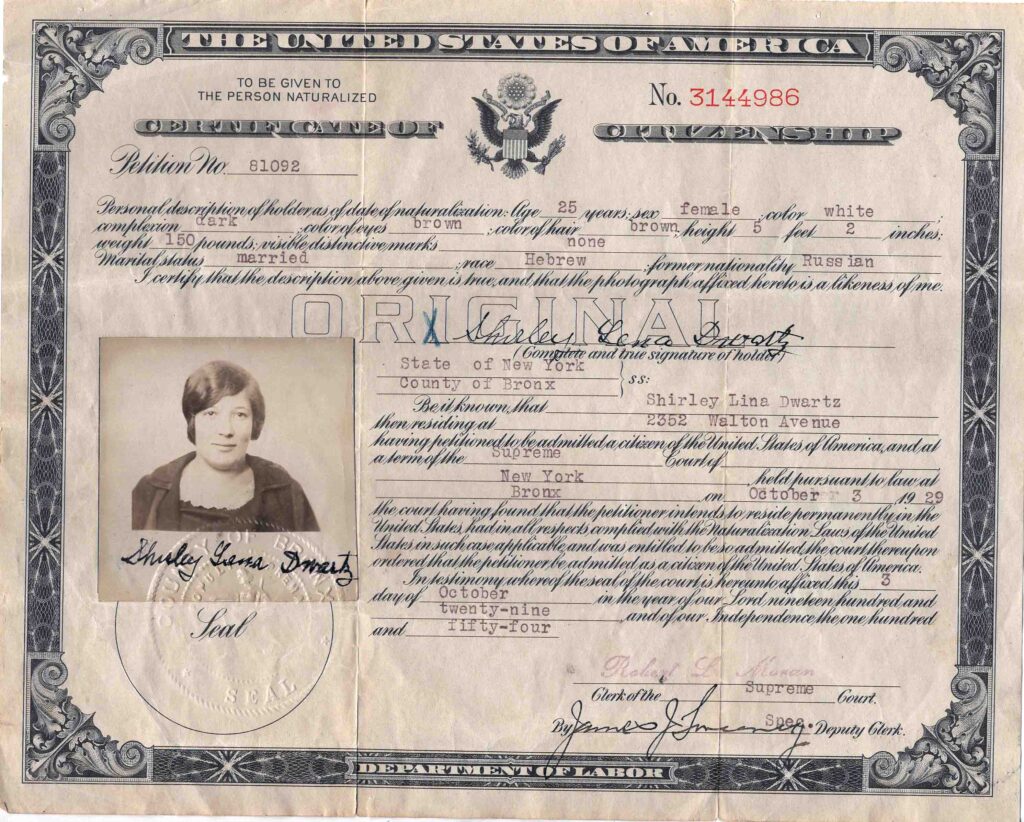 THE UNITED STATES OF AMERICA
TO BE GIVEN TO
THE PERSON NATURALIZED
No. 3144986
CERTIFICATE OF CITIZENSHIP
Petition No. 81092
Personal description of holder as of date of naturalization: Age 25 years; sex female; color white;
complexion dark; color of eyes brown; color of hair brown; height 5 feet 2 inches;
weight 150 pounds; visible distinctive marks none
Marital status married; race Hebrew; former nationality Russian
I certify that the description above given is true, and that the photograph affixed hereto is a likeness of me.
ORIGINAL
X Shirley Lena Dwartz
(Complete and true signature of holder)
State of New York
County of Bronx } ss:
Be it known, that Shirley Lina Dwartz
then residing at 2352 Walton Avenue
having petitioned to be admitted a citizen of the United States of America, and at
a term of the Supreme Court of
New York held pursuant to law at
Bronx on October 3 1929
the court having found that the petitioner intends to reside permanently in the
United States, had in all respects complied with the Naturalization Laws of the United
States in such case applicable and was entitled to be so admitted, the court thereupon
ordered that the petitioner be admitted as a citizen of the United States of America.
In testimony whereof the seal of the court is hereunto affixed this 3
day of October in the year of our Lord nineteen hundred and
twenty-nine and of our Independence the one hundred
and fifty-four
Shirley Lena Dwartz
Seal
SEAL
Robert L. Moran
Clerk of the Supreme Court.
By James J. Spec. Deputy Clerk.
DEPARTMENT OF LABOR